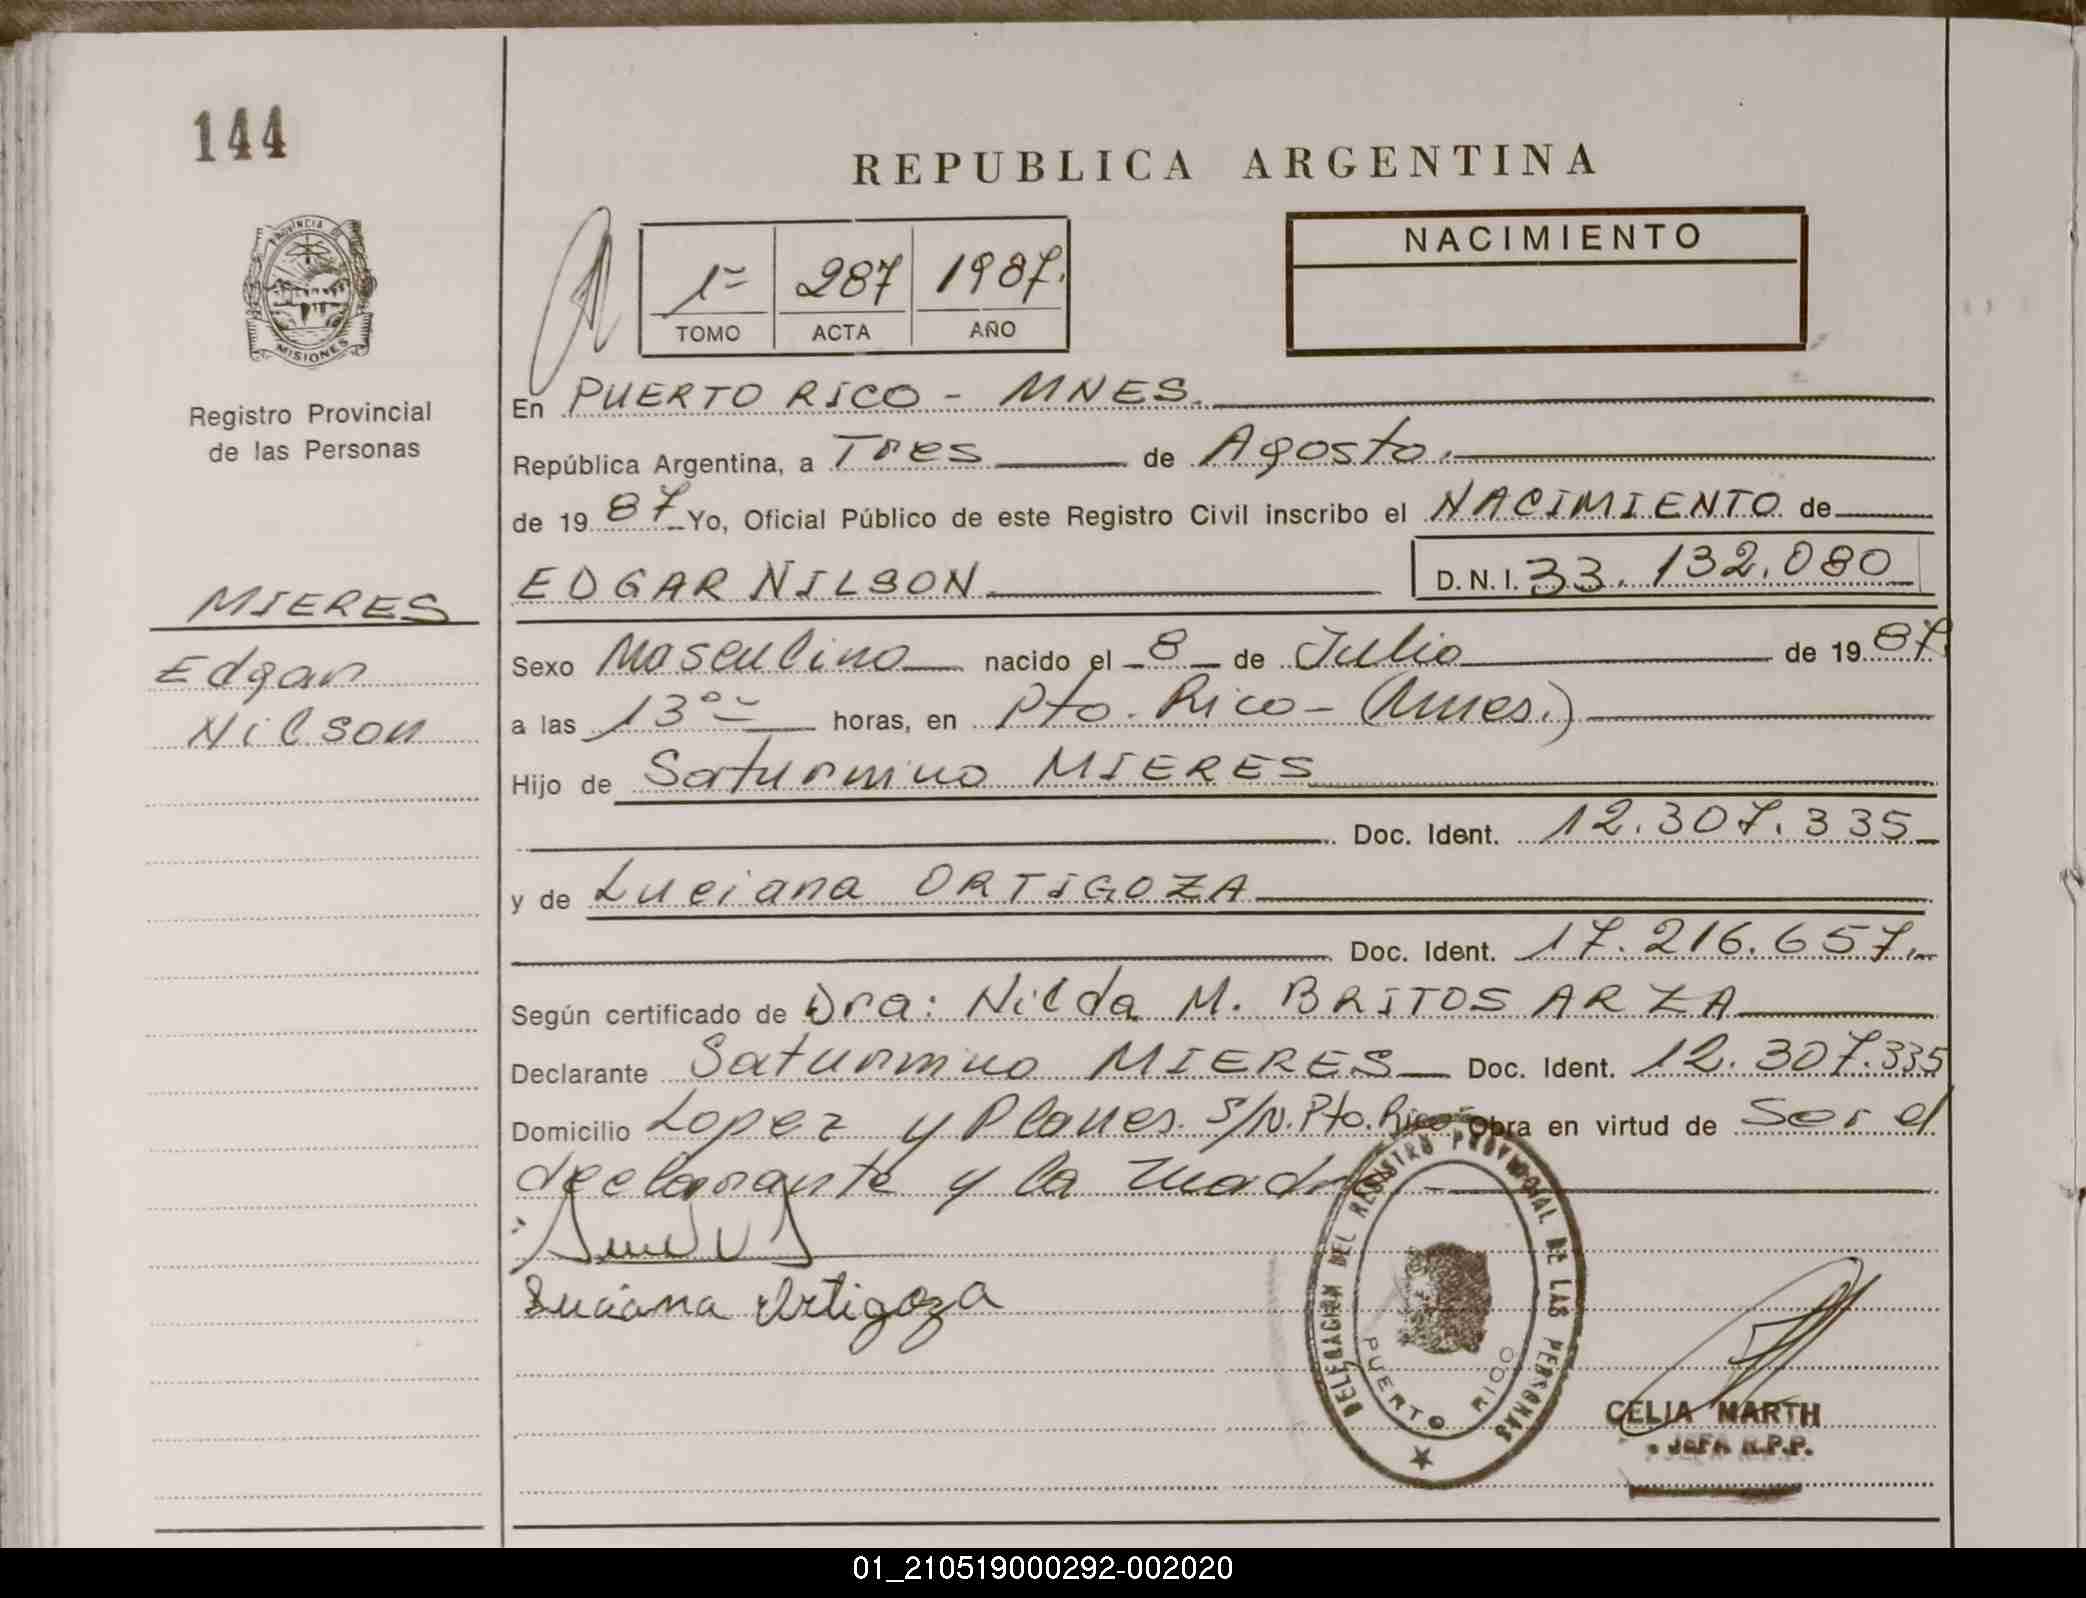 144
REPUBLICA ARGENTINA
PROVINCIA DE
MISIONES
Registro Provincial
de las Personas
1º 287 1987.
TOMO ACTA AÑO
NACIMIENTO
En PUERTO RICO - MNES.
República Argentina, a Tres de Agosto.
de 19 87 Yo, Oficial Público de este Registro Civil inscribo el NACIMIENTO de
EDGAR NILSON D.N.I. 33.132.080
MIERES
Edgar
Nilson
Sexo Masculino nacido el 8 de Julio de 19 87
a las 13°° horas, en Pto. Rico - (Mnes.)
Hijo de Saturnino MIERES
Doc. Ident. 12.307.335
y de Luciana ORTIGOZA
Doc. Ident. 17.216.657.
Según certificado de Dra: Nilda M. BRITOS ARZA
Declarante Saturnino MIERES Doc. Ident. 12.307.335
Domicilio Lopez y Planes. S/N. Pto. Rico Obra en virtud de Ser el
declarante y la madre
Luciana Ortigoza
DELEGACION DEL REGISTRO PROVINCIAL DE LAS PERSONAS
PUERTO RICO
CELIA MARTH
JEFA R.P.P.
01_210519000292-002020